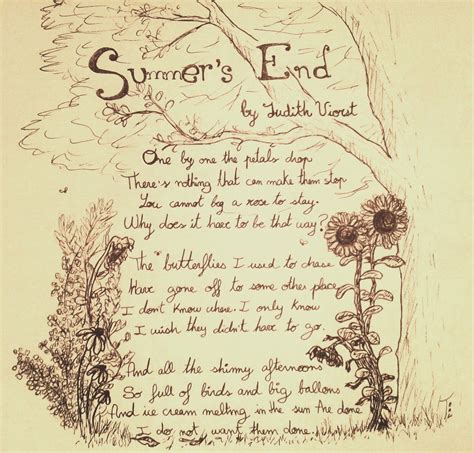 Summer's End
by Judith Viorst
One by one the petals drop
There's nothing that can make them stop
You cannot beg a rose to stay.
Why does it have to be that way?
The butterflies I used to chase
Have gone off to some other place
I don't know where. I only know
I wish they didn't have to go.
And all the shinny afternoons
So full of birds and big ballons
And ice cream melting in the sun Are done
I do not want them done.